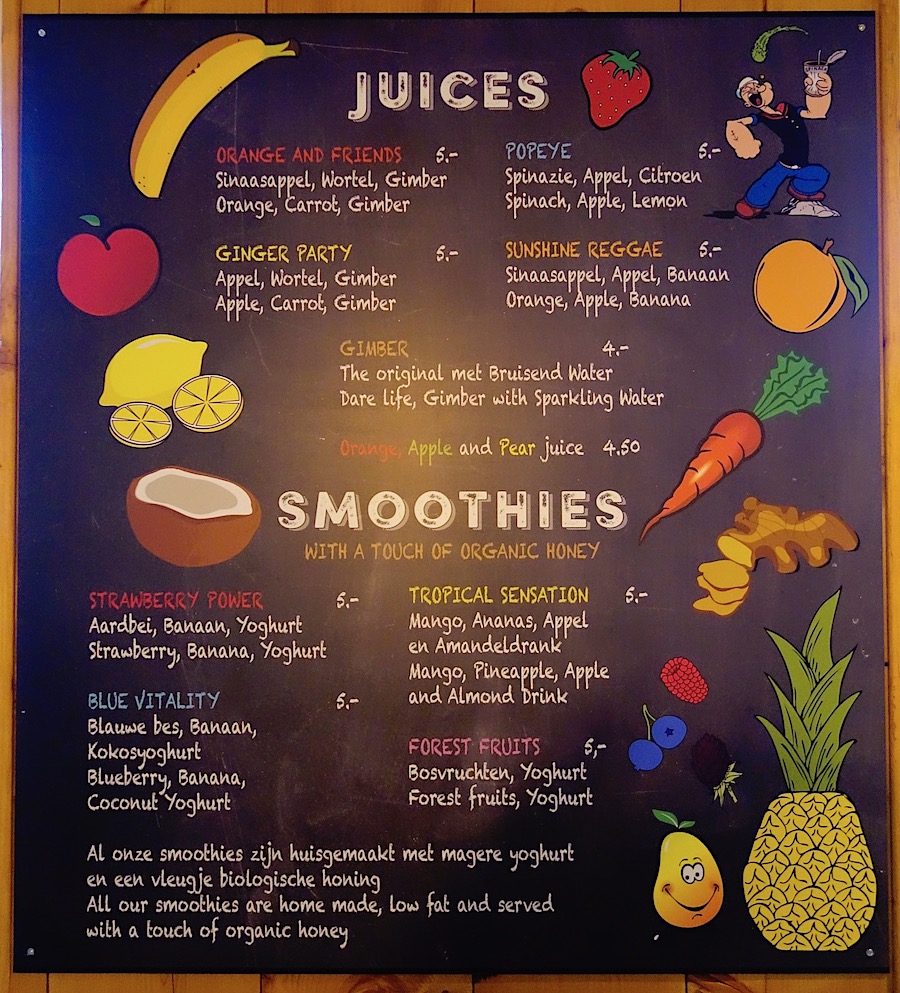 JUICES
ORANGE AND FRIENDS 5.-
Sinaasappel, Wortel, Gimber
Orange, Carrot, Gimber
POPEYE 5.-
Spinazie, Appel, Citroen
Spinach, Apple, Lemon
GINGER PARTY 5.-
Appel, Wortel, Gimber
Apple, Carrot, Gimber
SUNSHINE REGGAE 5.-
Sinaasappel, Appel, Banaan
Orange, Apple, Banana
GIMBER 4.-
The original met Bruisend Water
Dare life, Gimber with Sparkling Water
Orange, Apple and Pear juice 4.50
SMOOTHIES
WITH A TOUCH OF ORGANIC HONEY
STRAWBERRY POWER 5.-
Aardbei, Banaan, Yoghurt
Strawberry, Banana, Yoghurt
BLUE VITALITY 5.-
Blauwe bes, Banaan,
Kokosyoghurt
Blueberry, Banana,
Coconut Yoghurt
TROPICAL SENSATION 5.-
Mango, Ananas, Appel
en Amandeldrank
Mango, Pineapple, Apple
and Almond Drink
FOREST FRUITS 5,-
Bosvruchten, Yoghurt
Forest fruits, Yoghurt
Al onze smoothies zijn huisgemaakt met magere yoghurt
en een vleugje biologische honing
All our smoothies are home made, low fat and served
with a touch of organic honey